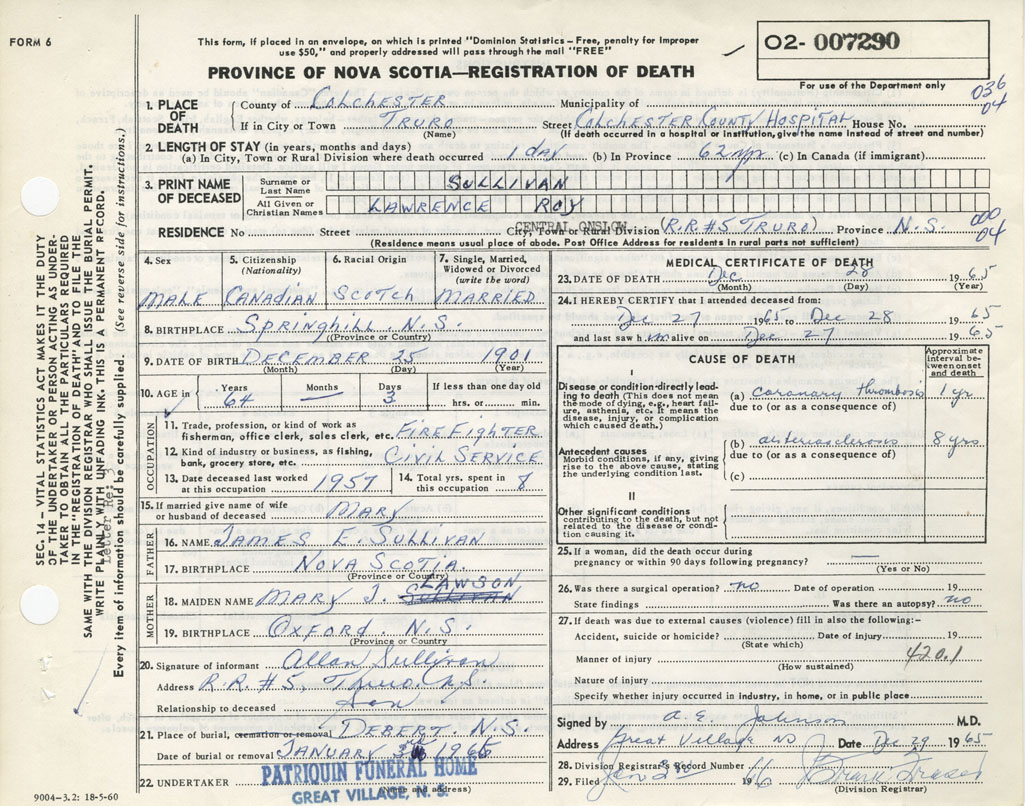 FORM 6
This form, if placed in an envelope, on which is printed "Dominion Statistics - Free, penalty for improper
use $50," and properly addressed will pass through the mail "FREE"
02- 007290
For use of the Department only
PROVINCE OF NOVA SCOTIA—REGISTRATION OF DEATH
036
04
1. PLACE OF DEATH
County of COLCHESTER Municipality of
If in City or Town TRURO Street COLCHESTER COUNTY HOSPITAL House No.
(Name) (If death occurred in a hospital or institution, give the name instead of street and number)
2. LENGTH OF STAY (in years, months and days)
(a) In City, Town or Rural Division where death occurred 1 day (b) In Province 62 yrs (c) In Canada (if immigrant)
3. PRINT NAME OF DECEASED
Surname or Last Name SULLIVAN
All Given or Christian Names LAWRENCE ROY
000
04
CENTRAL ONSLOW
RESIDENCE No Street City, Town or Rural Division (R.R.#5 TRURO) Province N.S.
(Residence means usual place of abode. Post Office Address for residents in rural parts not sufficient)
4. Sex MALE
5. Citizenship (Nationality) CANADIAN
6. Racial Origin SCOTCH
7. Single, Married, Widowed or Divorced (write the word) MARRIED
8. BIRTHPLACE SPRINGHILL N.S.
(Province or Country)
9. DATE OF BIRTH DECEMBER 25 1901
(Month) (Day) (Year)
10. AGE in Years 64 Months — Days 3 If less than one day old hrs. or min.
OCCUPATION
11. Trade, profession, or kind of work as
fisherman, office clerk, sales clerk, etc. FIRE FIGHTER
12. Kind of industry or business, as fishing,
bank, grocery store, etc. CIVIL SERVICE
13. Date deceased last worked at this occupation 1957
14. Total yrs. spent in this occupation 8
15. If married give name of wife
or husband of deceased MARY
FATHER
16. NAME JAMES E. SULLIVAN
17. BIRTHPLACE NOVA SCOTIA
(Province or Country)
MOTHER
LAWSON
18. MAIDEN NAME MARY J. SULLIVAN
19. BIRTHPLACE OXFORD N.S.
(Province or Country)
20. Signature of informant Allan Sullivan
Address R.R. #5, Truro, N.S.
Relationship to deceased Son
21. Place of burial, cremation or removal DEBERT N.S.
Date of burial or removal JANUARY 3rd 1966
22. UNDERTAKER PATRIQUIN FUNERAL HOME
GREAT VILLAGE, N. S.
(Name and address)
9004-3.2: 18-5-60
MEDICAL CERTIFICATE OF DEATH
23. DATE OF DEATH Dec 28 1965
(Month) (Day) (Year)
24. I HEREBY CERTIFY that I attended deceased from:
Dec 27 1965 to Dec 28 1965
and last saw him alive on Dec 27 1965
CAUSE OF DEATH
Approximate interval between onset and death
I
Disease or condition directly leading to death (This does not mean the mode of dying, e.g., heart failure, asthenia, etc. It means the disease, injury, or complication which caused death.)
(a) coronary thrombosis 1 yr
due to (or as a consequence of)
Antecedent causes
Morbid conditions, if any, giving rise to the above cause, stating the underlying condition last.
(b) arteriosclerosis 8 yrs
due to (or as a consequence of)
(c)
II
Other significant conditions
contributing to the death, but not related to the disease or condition causing it.
25. If a woman, did the death occur during
pregnancy or within 90 days following pregnancy? —
(Yes or No)
26. Was there a surgical operation? no Date of operation 19
State findings Was there an autopsy? no
27. If death was due to external causes (violence) fill in also the following:-
Accident, suicide or homicide? Date of injury 19
(State which)
420.1
Manner of injury
(How sustained)
Nature of injury
Specify whether injury occurred in industry, in home, or in public place
Signed by A. E. Johnson M.D.
Address Great Village NS Date Dec 29 1965
28. Division Registrar's Record Number
29. Filed Jan 1966 Frank Fraser
(Division Registrar)
SEC. 14 - VITAL STATISTICS ACT MAKES IT THE DUTY
OF THE UNDERTAKER OR PERSON ACTING AS UNDER-
TAKER TO OBTAIN ALL THE PARTICULARS REQUIRED
IN THE "REGISTRATION OF DEATH" AND TO FILE THE
SAME WITH THE DIVISION REGISTRAR WHO SHALL ISSUE THE BURIAL PERMIT.
WRITE PLAINLY WITH UNFADING INK. THIS IS A PERMANENT RECORD.
Letter Re: 3
Every item of information should be carefully supplied. (See reverse side for instructions.)